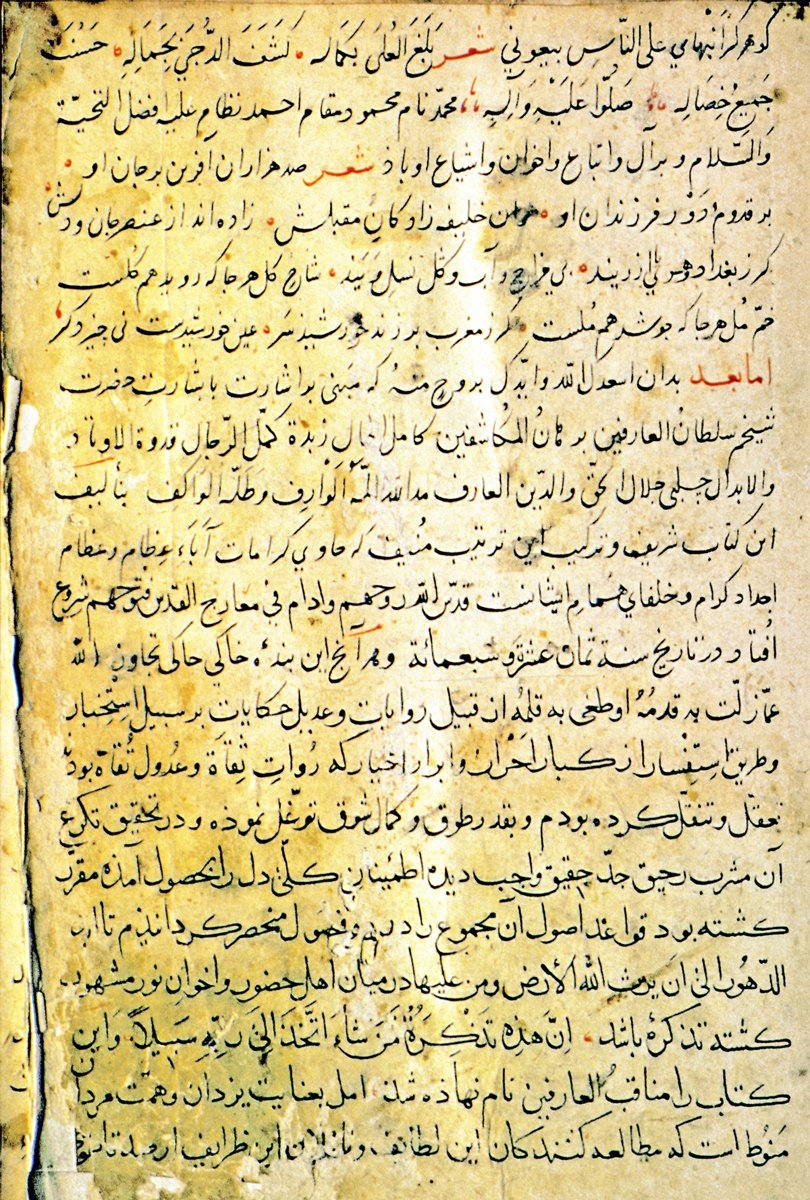 گوهر کز انتهامی علی الناس بیعونی شعر بَلَغَ العُلی بکماله کَشَفَ الدُّجی بِجَمالِهِ حَسُنَت
جَمیعُ خِصَالِهِ صَلُّوا عَلَیْهِ وَآلِهِ محمّد نام محمود مقام احمد نظام علیه افضل التحیّة
وَالسّلام و بر آل و اتباع و اخوان و اشیاع او باذ شعر صد هزاران آفرین بر جان او
بر قدوم و دَوْرِ فرزندان او آن خلیفه زادکانِ مقبلش زاده اند از عنصر جان و دلش
کر ز بغداد و هری یا از ریند بی مزاج آب و گل نسل ویند شاخ گل هر جا که روید هم گلست
خمّ مُل هر جا که جوشد هم مُلست گر ز مغرب بر زند خورشید سر عین خورشیدست نی چیز دگر
اما بعد بدان اسعدک الله وایّدک بروح منهُ که مبنی بر اشارت با بشارتِ حضرت
شیخم سلطانُ العارفین برهانُ المکاشفین کامل الحال زبدة کمّل الرّجال قدوة الاوتاد
والابدال چلبی جلال الحقّ والدّین العارف مد الله ظلّه الْوارِف وطلّه الواکف بتألیف
این کتاب شریف و ترکیب این ترتیب مُنیف که حاوی کرامات آبَاء عِظام و عظام
اجداد کرام و خلفای هُمام ایشانست قدّس الله روحهم وادام فی معارج القدس فتوحهم شروع
اُفتاد در تاریخ سنة ثمان عشرة و سبعمائة وهر آنچ این بندهٔ خاکی حاکی تجاوز الله
عمّا زلّت به قدمُهُ او طغی به قلمُهُ از قبیل روایات و عدیل حکایات بر سبیل اِستِخبار
و طریق اِستِفسار از کبار احْرار و ابرار اخیار که رُواتِ ثِقاة و عُدول ثُقاة بودند
تعقّل و تنقّل کرده بودم و بقدر طوق و کمال شوق توغّل نموذه و در تحقیق تکرّع
آن مشرب رحیق جدّ حقیق واجب دیده اطمینانِ کلّی دل را بحصول آمذه مقرّر
کشته بود قواعد اصول آن مجموع را در ده فصول منحصر کردانیذم تا ابد
الدّهور الی ان یرث الله الارض ومن علیها در میان اهل حضور و اخوان نور مشهور
کشته تذکرهٔ باشد اِنّ هذِهِ تذکِرَةٌ فَمَن شاءَ اتَّخَذَ اِلیٰ رَبِّهِ سَبیلًا وَاین
کتاب را مناقبُ العارفین نام نهاذه شذ امل بعنایت یزدان و همّت مردان
مَنوُط است که مطالعه کنندکان این لطائف و ناقلان این ظرایف